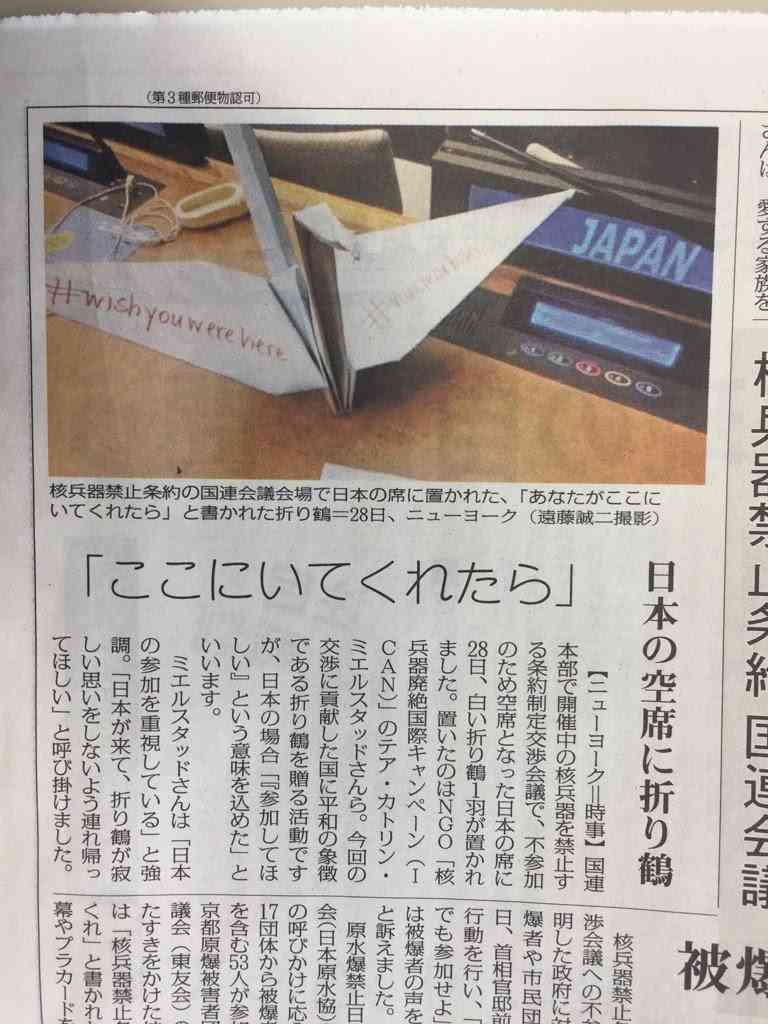 （第3種郵便物認可）
JAPAN
#wishyouwerehere
核兵器禁止条約の国連会議会場で日本の席に置かれた、「あなたがここに
いてくれたら」と書かれた折り鶴＝28日、ニューヨーク（遠藤誠二撮影）
「ここにいてくれたら」
日本の空席に折り鶴
【ニューヨーク＝時事】国連
本部で開催中の核兵器を禁止す
る条約制定交渉会議で、不参加
のため空席となった日本の席に
28日、白い折り鶴1羽が置かれ
ました。置いたのはNGO「核
兵器廃絶国際キャンペーン（I
CAN）」のテア・カトリン・
ミエルスタッドさんら。今回の
交渉に貢献した国に平和の象徴
である折り鶴を贈る活動です
が、日本の場合「『参加してほ
しい』という意味を込めた」と
いいます。
ミエルスタッドさんは「日本
の参加を重視している」と強
調。「日本が来て、折り鶴が寂
しい思いをしないよう連れ帰っ
てほしい」と呼び掛けました。
愛する家族を
核兵器禁止条約 国連会議
被爆
核兵器禁止
渉会議への不
明した政府に
爆者や市民団
日、首相官邸前
行動を行い、「
でも参加せよ」
は被爆者の声を
と訴えました。
原水爆禁止日
会(日本原水協)
の呼びかけに応
17団体から被爆者
を含む53人が参加
京都原爆被害者団
議会（東友会）の
たすきをかけた
は「核兵器禁止条
くれ」と書かれ
幕やプラカードを